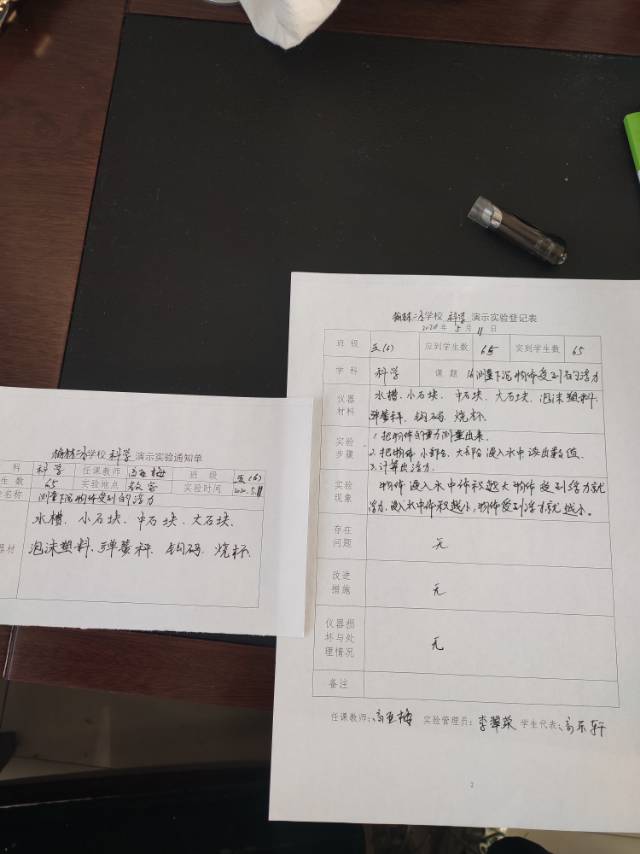 学校 科学 演示实验通知单
科 科学 任课教师 班级 五(6)
生数 65 实验地点 教室 实验时间
名称 测量下沉物体受到的浮力
水槽、小石块、中石块、大石块、
器材 泡沫塑料、弹簧秤、钩码、烧杯
学校 科学 演示实验登记表
年 5 月 11 日
班级 五(6) 应到学生数 65 实到学生数 65
学科 科学 课题 测量下沉物体受到的浮力
仪器 水槽、小石块、中石块、大石块、泡沫塑料、
材料 弹簧秤、钩码、烧杯
实验 1.把物体的重力测量出来。
步骤 2.把物体小部分、大部分浸入水中读出数值。
3.计算出浮力。
实验 物体浸入水中体积越大物体受到浮力就
现象 浸入水中体积越小,物体受到浮力就越小。
存在
问题 无
改进
措施 无
仪器损
坏与处 无
理情况
备注
任课教师: 实验管理员: 学生代表:
2